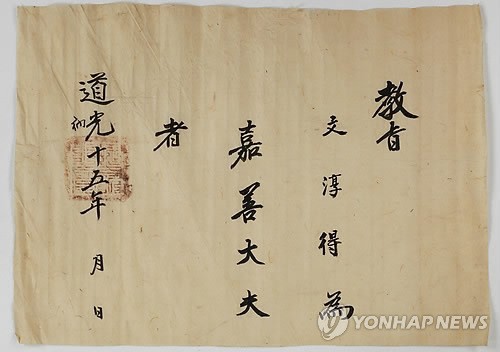 教旨
文淳得為
嘉善大夫
者
道光十五年 月 日
納
YONHAP NEWS